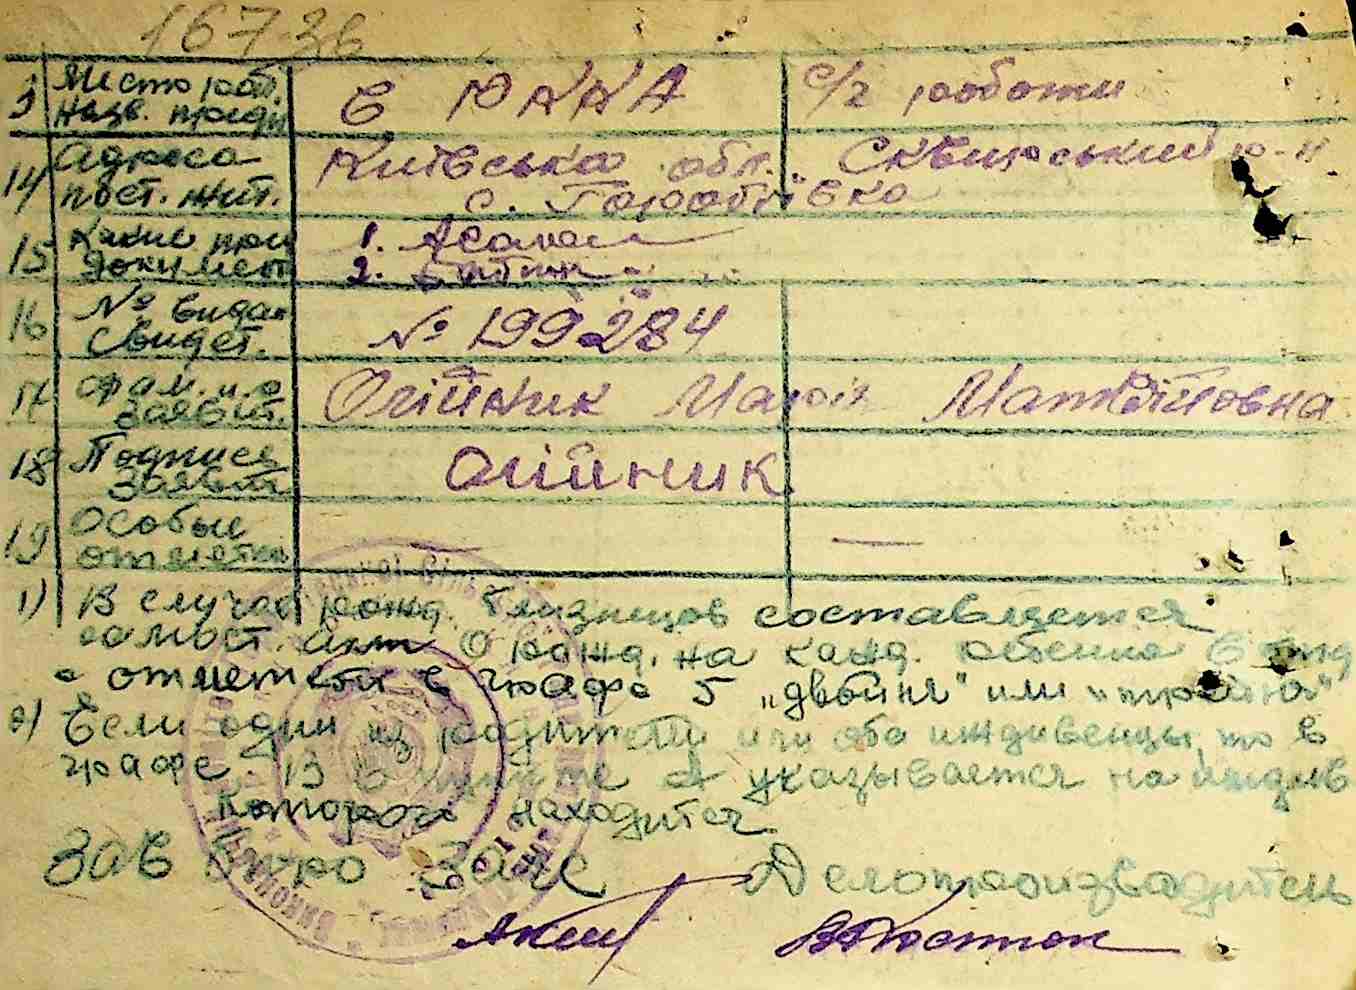 167-36
Место раб. назв. предп В РККА с/г роботи
14 Адреса Київська обл. Сквирський р-н
пост. жит. с. Горобіївка
15 Какие
докумен 1.
2.
16 № видан
свидет. № 199284
17 фам. и. о
заявит. Олійник Марія Матвіївна
18 Подпись
заявит Олійник
19 Особые
отметки —
1) В случае рожд. близнецов составляется
самост. акт о рожд. на кажд. ребенка в отд
с отметкой в графе 5 „двойня" или „тройня"
2) Если один из родителей или оба иждивенцы, то в
графе 13 в пункте указывается на иждив
которого находится
Зав бюро Загс Делопроизводитель